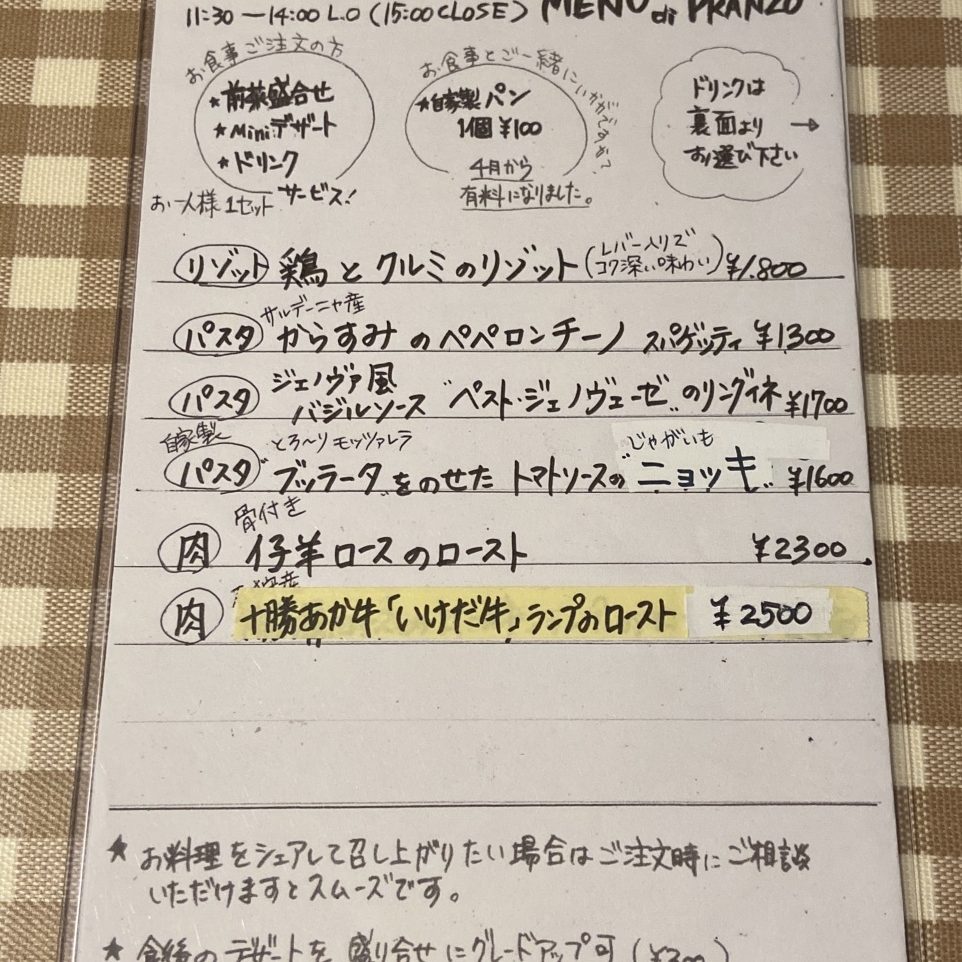 11:30—14:00 L.O (15:00 CLOSE) MENU di PRANZO
お食事ご注文の方
★前菜盛合せ
★Miniデザート
★ドリンク
お一人様1セット サービス!
お食事とご一緒にいかがですか?
★自家製パン
1個 ¥100
4月から
有料になりました。
ドリンクは
裏面より →
お選び下さい
リゾット 鶏とクルミのリゾット (レバー入りで コク深い味わい) ¥1.800
サルデーニャ産
パスタ からすみのペペロンチーノ スパゲッティ ¥1300
パスタ ジェノヴァ風 バジルソース "ペスト・ジェノヴェーゼ" のリングイネ ¥1700
自家製 とろ〜りモッツァレラ じゃがいも
パスタ "ブッラータ"をのせた トマトソースの"ニョッキ" ¥1600
骨付き
肉 仔羊ロースのロースト ¥2300
肉 十勝あか牛「いけだ牛」ランプのロースト ¥2500
★ お料理をシェアして召し上がりたい場合はご注文時にご相談
いただけますとスムーズです。
★ 食後のデザートを 盛り合せにグレードアップ可 (¥300)